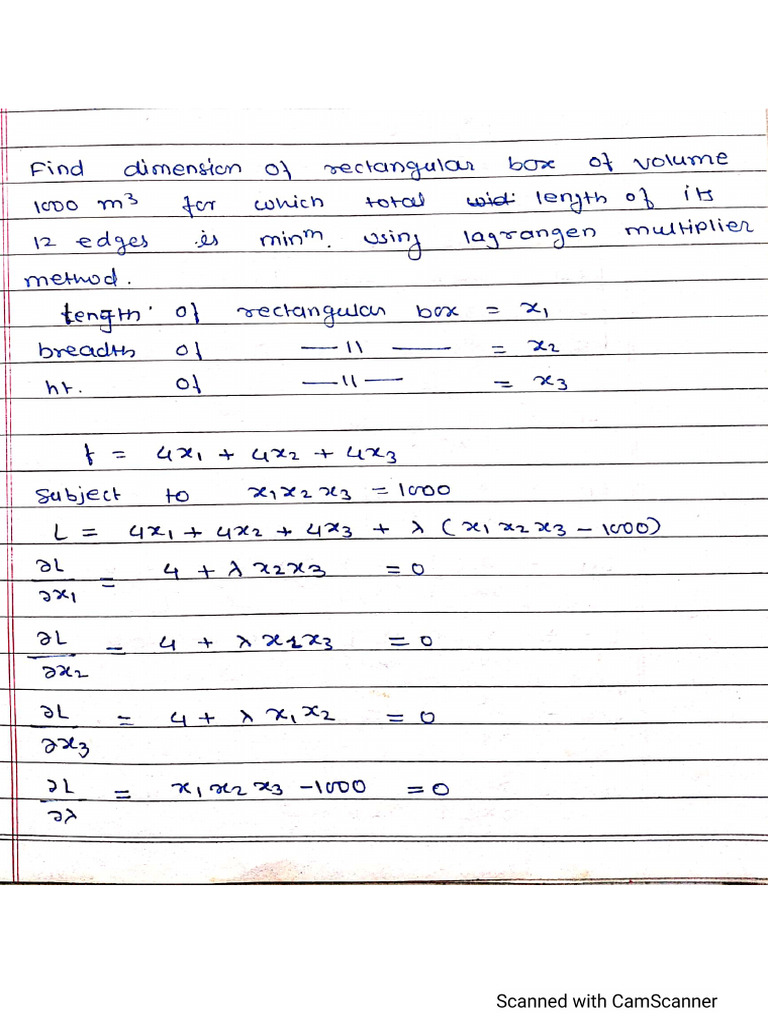 Find dimension of rectangular box of volume
1000 m³ for which total wid. length of its
12 edges is minᵐ. using lagrangen multiplier
method.
length of rectangular box = x₁
breadth of —11— = x₂
ht. of —11— = x₃
f = 4x₁ + 4x₂ + 4x₃
Subject to x₁x₂x₃ = 1000
L = 4x₁ + 4x₂ + 4x₃ + λ (x₁x₂x₃ - 1000)
∂L/∂x₁ = 4 + λ x₂x₃ = 0
∂L/∂x₂ = 4 + λ x₁x₃ = 0
∂L/∂x₃ = 4 + λ x₁x₂ = 0
∂L/∂λ = x₁x₂x₃ - 1000 = 0
Scanned with CamScanner